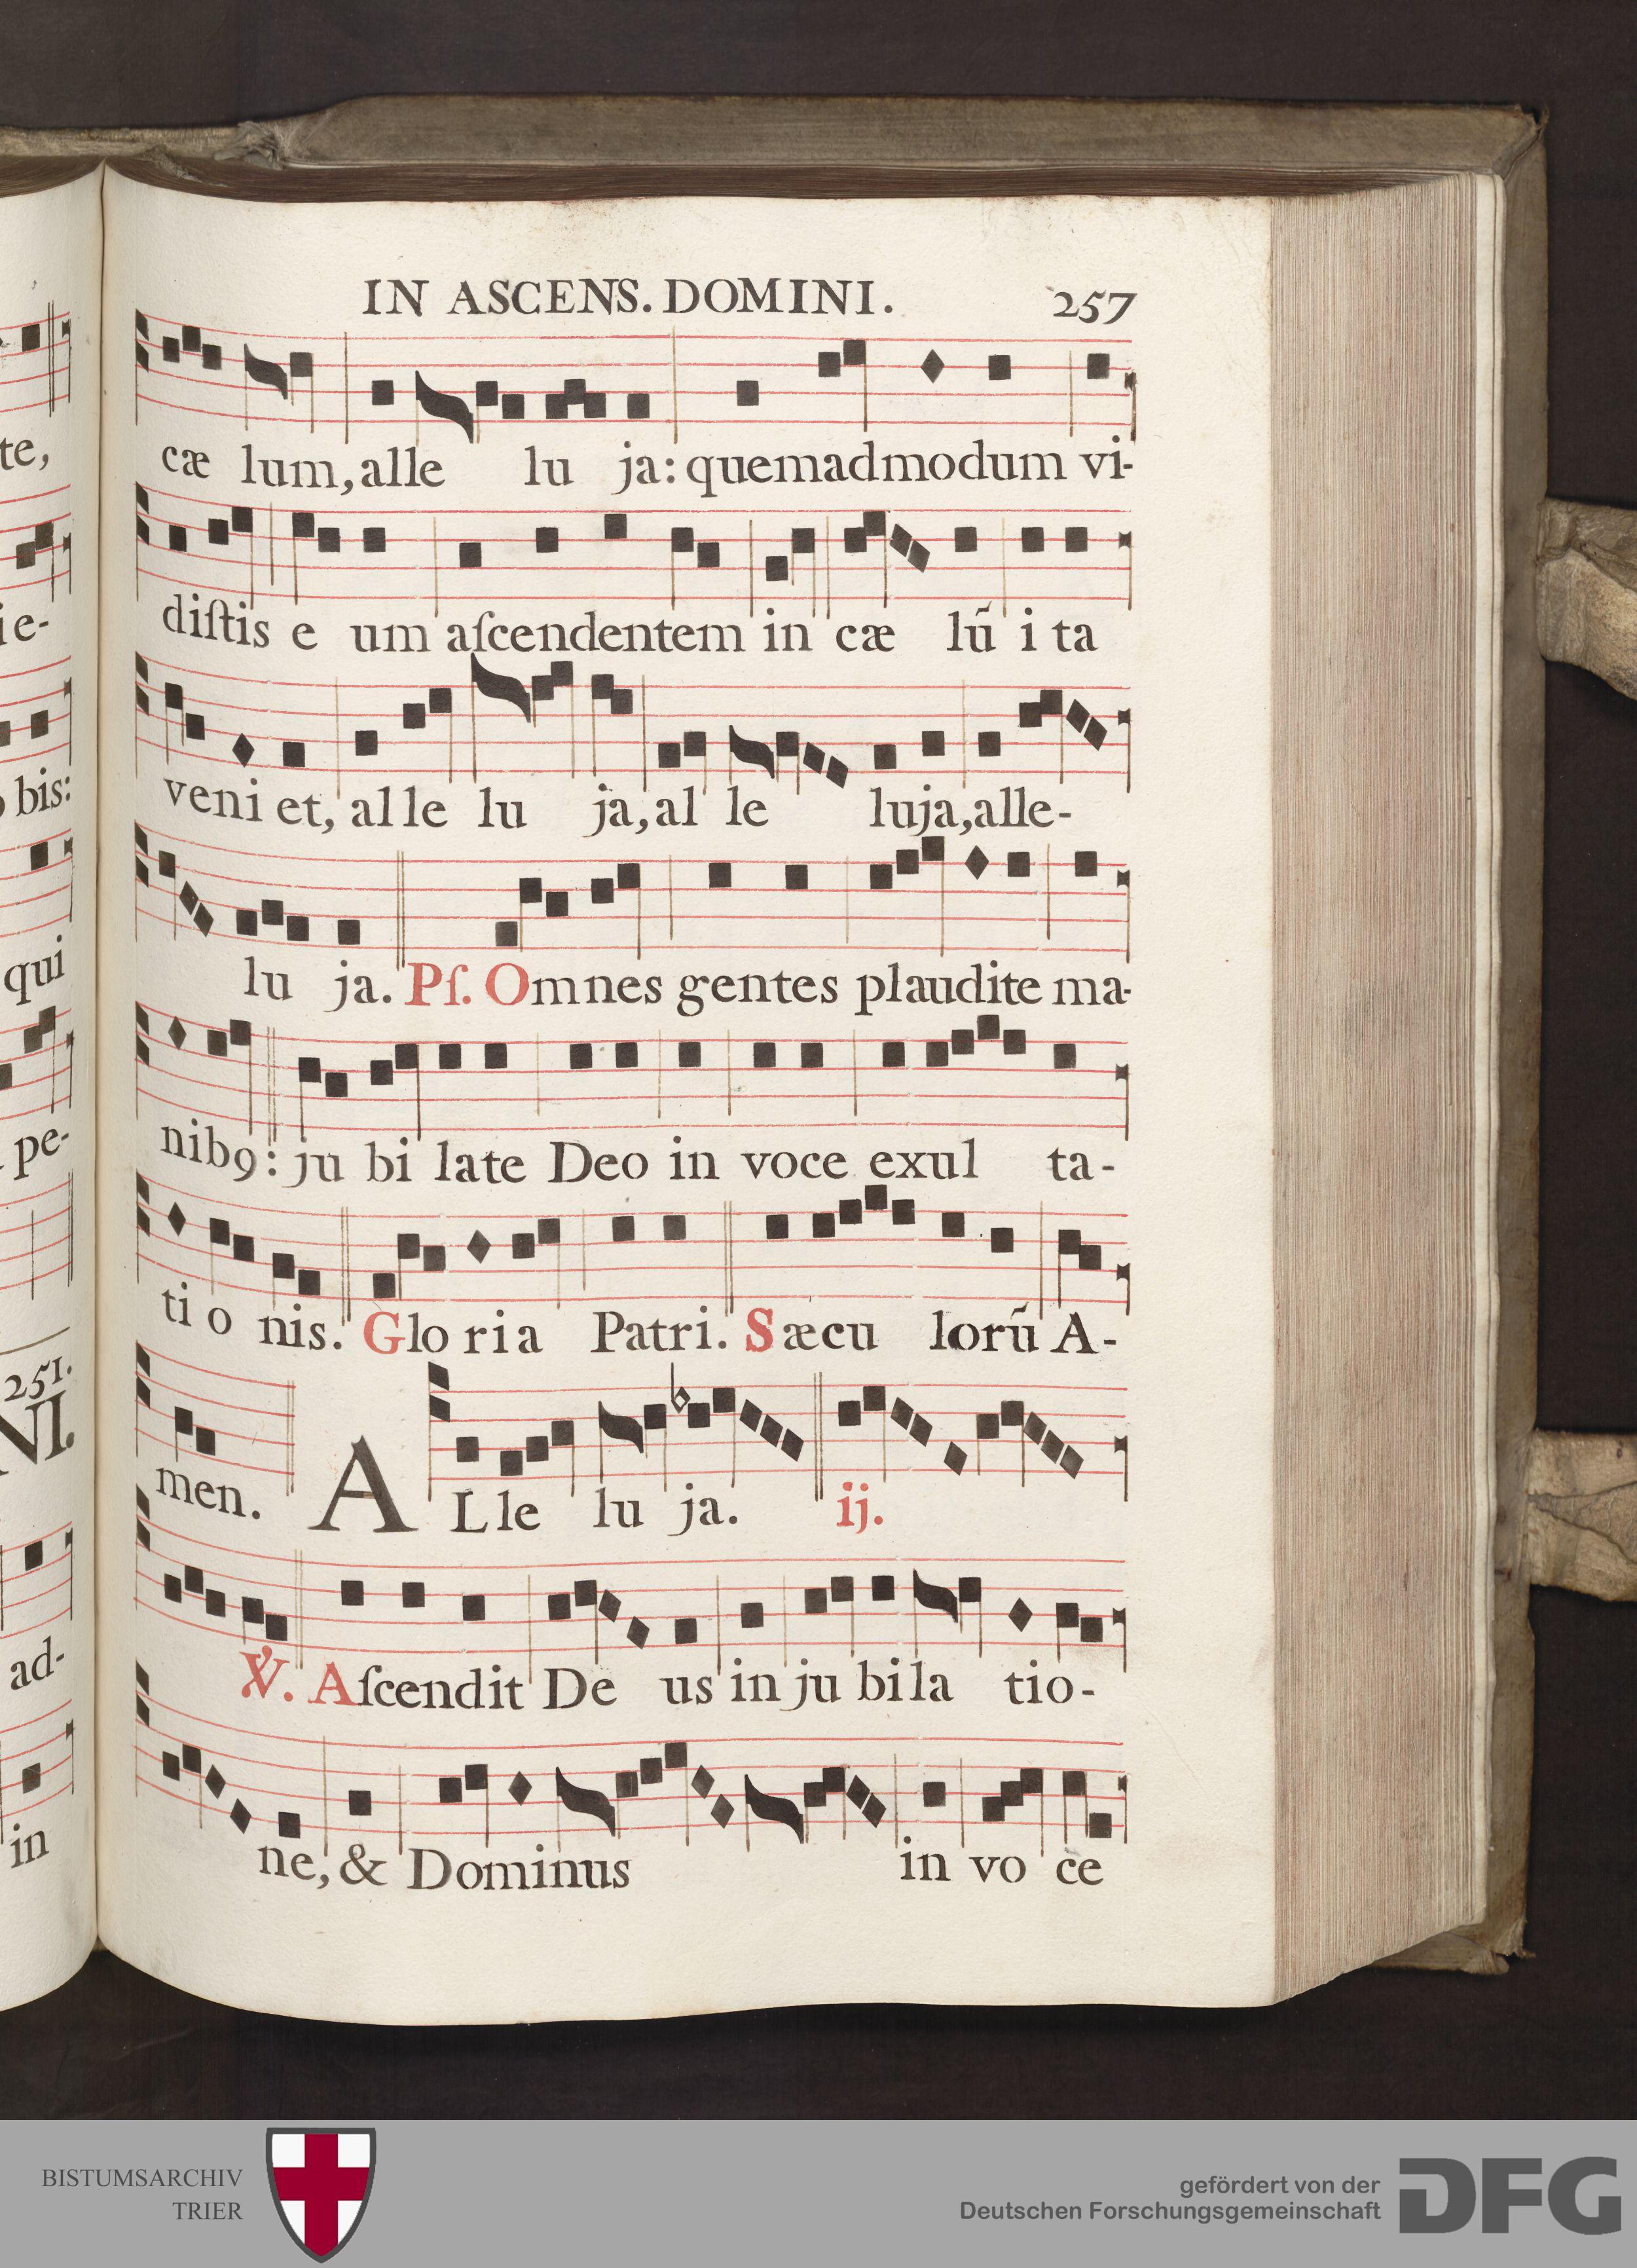 IN ASCENS. DOMINI. 257
te,
cæ lum, alle lu ja: quemadmodum vi-
ie-
diſtis e um aſcendentem in cæ lũ i ta
bis:
veni et, alle lu ja, al le luja, alle-
qui
lu ja. Pſ. Omnes gentes plaudite ma-
pe-
nibꝯ: ju bi late Deo in voce exul ta-
251.
NI.
ti o nis. Glo ria Patri. Sæcu lorũ A-
men. ALle lu ja. ij.
ad-
℣. Aſcendit De us in ju bila tio-
in
ne, & Dominus in vo ce
BISTUMSARCHIV
TRIER
gefördert von der
Deutschen Forschungsgemeinschaft
DFG